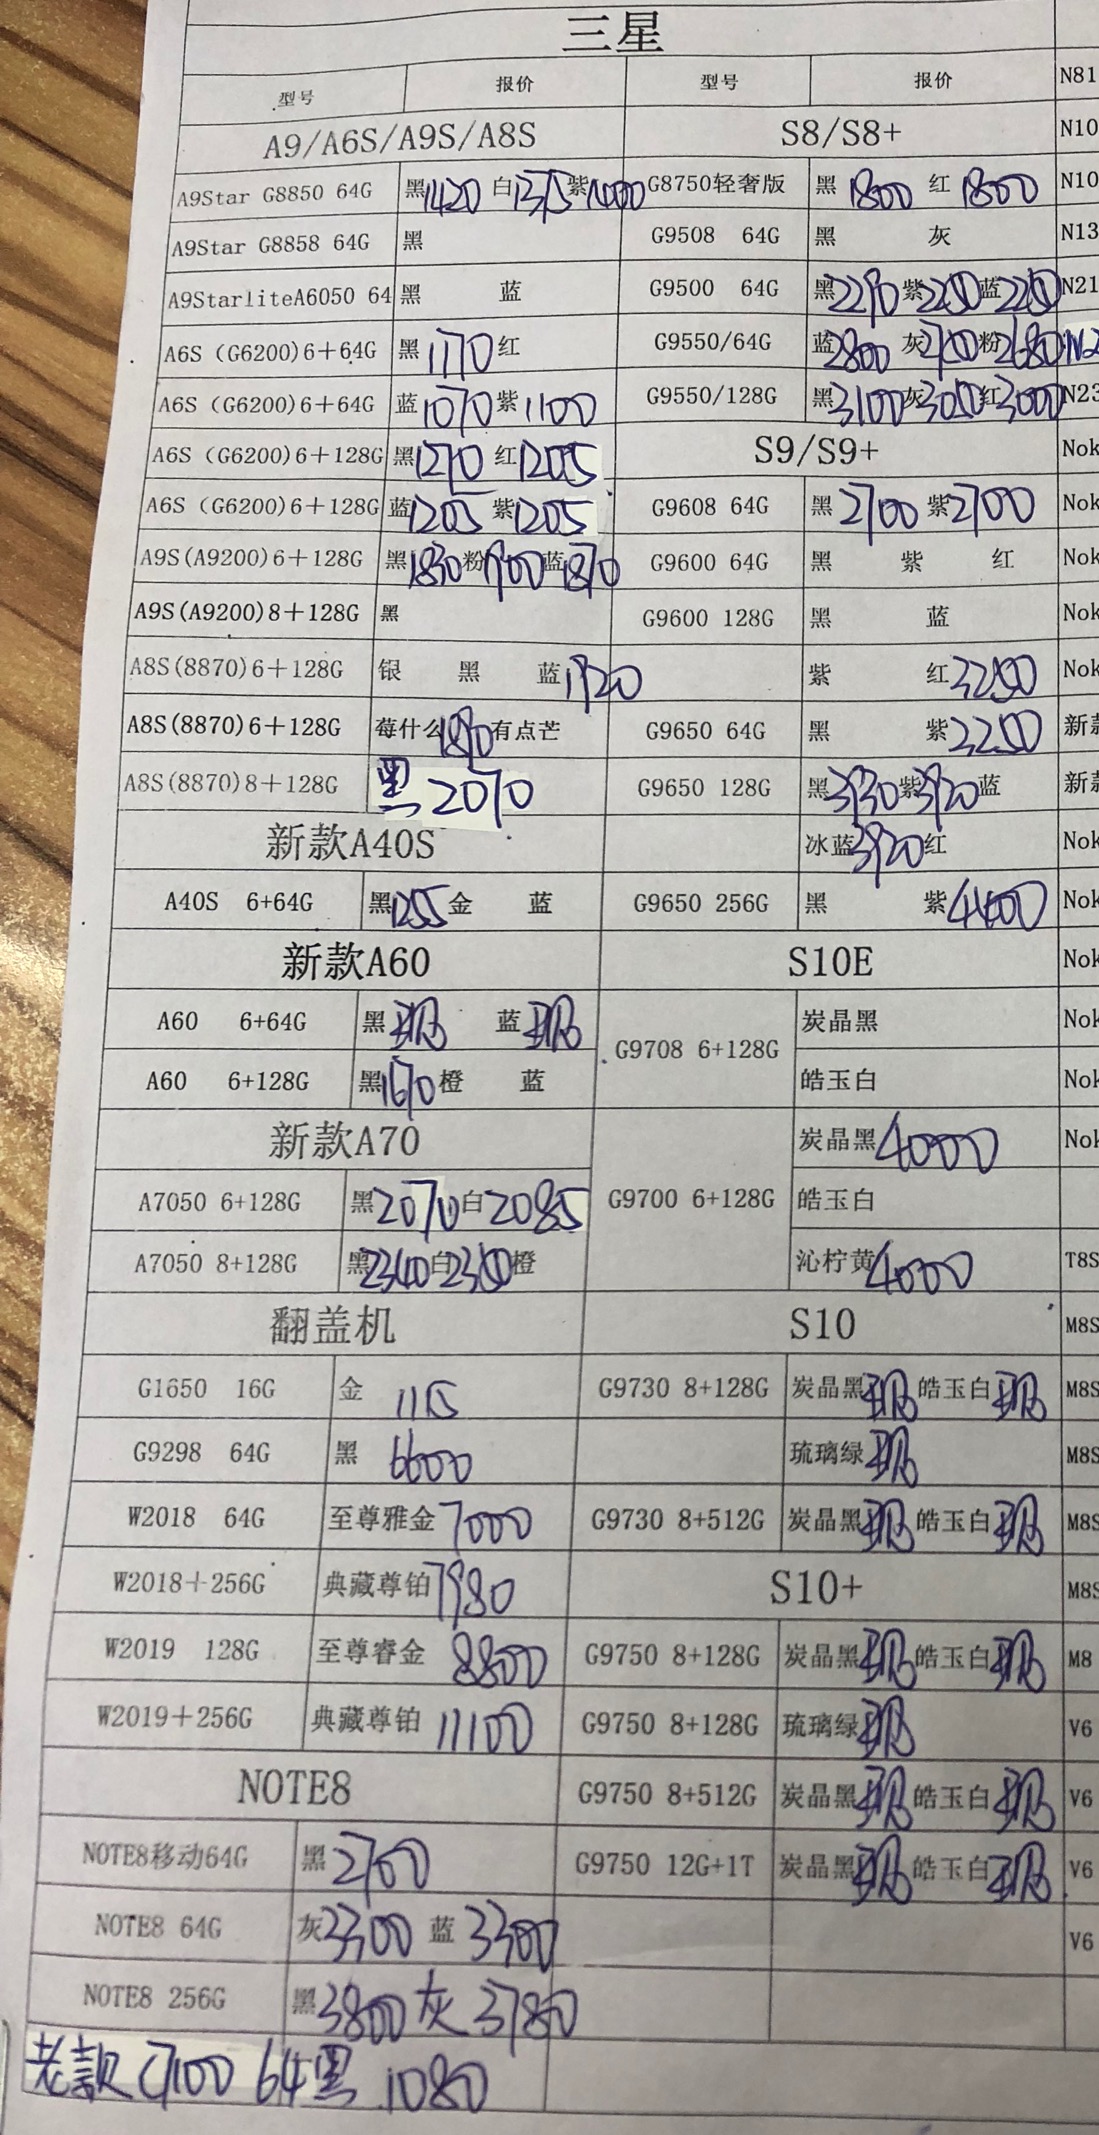 三星
型号 报价 型号 报价 N81
A9/A6S/A9S/A8S S8/S8+ N10
A9Star G8850 64G 黑1420 白1375 紫1400 G8750轻奢版 黑 1800 红 1800 N10
A9Star G8858 64G 黑 G9508 64G 黑 灰 N13
A9StarliteA6050 64 黑 蓝 G9500 64G 黑2290 紫2250 蓝2250 N21
A6S (G6200)6+64G 黑1170 红 G9550/64G 蓝2800 灰2700 粉2680
A6S (G6200)6+64G 蓝1070 紫1100 G9550/128G 黑3100 灰3050 红3000 N23
A6S (G6200)6+128G 黑1270 红1205 S9/S9+ Nok
A6S (G6200)6+128G 蓝1205 紫1205 G9608 64G 黑2700 紫2700 Nok
A9S(A9200)6+128G 黑1830 粉1900 蓝1870 G9600 64G 黑 紫 红 Nok
A9S(A9200)8+128G 黑 G9600 128G 黑 蓝 Nok
A8S(8870)6+128G 银 黑 蓝1920 紫 红3250 Nok
A8S(8870)6+128G 莓什么1890有点芒 G9650 64G 黑 紫3250 新款
A8S(8870)8+128G 黑2070 G9650 128G 黑3930 紫3920 蓝 新款
新款A40S 冰蓝3920 红 Nok
A40S 6+64G 黑1255 金 蓝 G9650 256G 黑 紫4400 Nok
新款A60 S10E Nok
A60 6+64G 黑 蓝 G9708 6+128G 炭晶黑 Nok
A60 6+128G 黑1670 橙 蓝 皓玉白 Nok
新款A70 炭晶黑4000 Nok
A7050 6+128G 黑2070 白2085 G9700 6+128G 皓玉白
A7050 8+128G 黑2340 白2350 橙 沁柠黄4000 T8S
翻盖机 S10 M8S
G1650 16G 金 1115 G9730 8+128G 炭晶黑 皓玉白 M8S
G9298 64G 黑 6600 琉璃绿 M8S
W2018 64G 至尊雅金 7000 G9730 8+512G 炭晶黑 皓玉白 M8S
W2018+256G 典藏尊铂 7980 S10+ M8S
W2019 128G 至尊睿金 8800 G9750 8+128G 炭晶黑 皓玉白 M8
W2019+256G 典藏尊铂 11100 G9750 8+128G 琉璃绿 V6
NOTE8 G9750 8+512G 炭晶黑 皓玉白 V6
NOTE8移动64G 黑2760 G9750 12G+1T 炭晶黑 皓玉白 V6
NOTE8 64G 灰3300 蓝 3300 V6
NOTE8 256G 黑3800 灰 3780
老款 C7100 64黑 1080